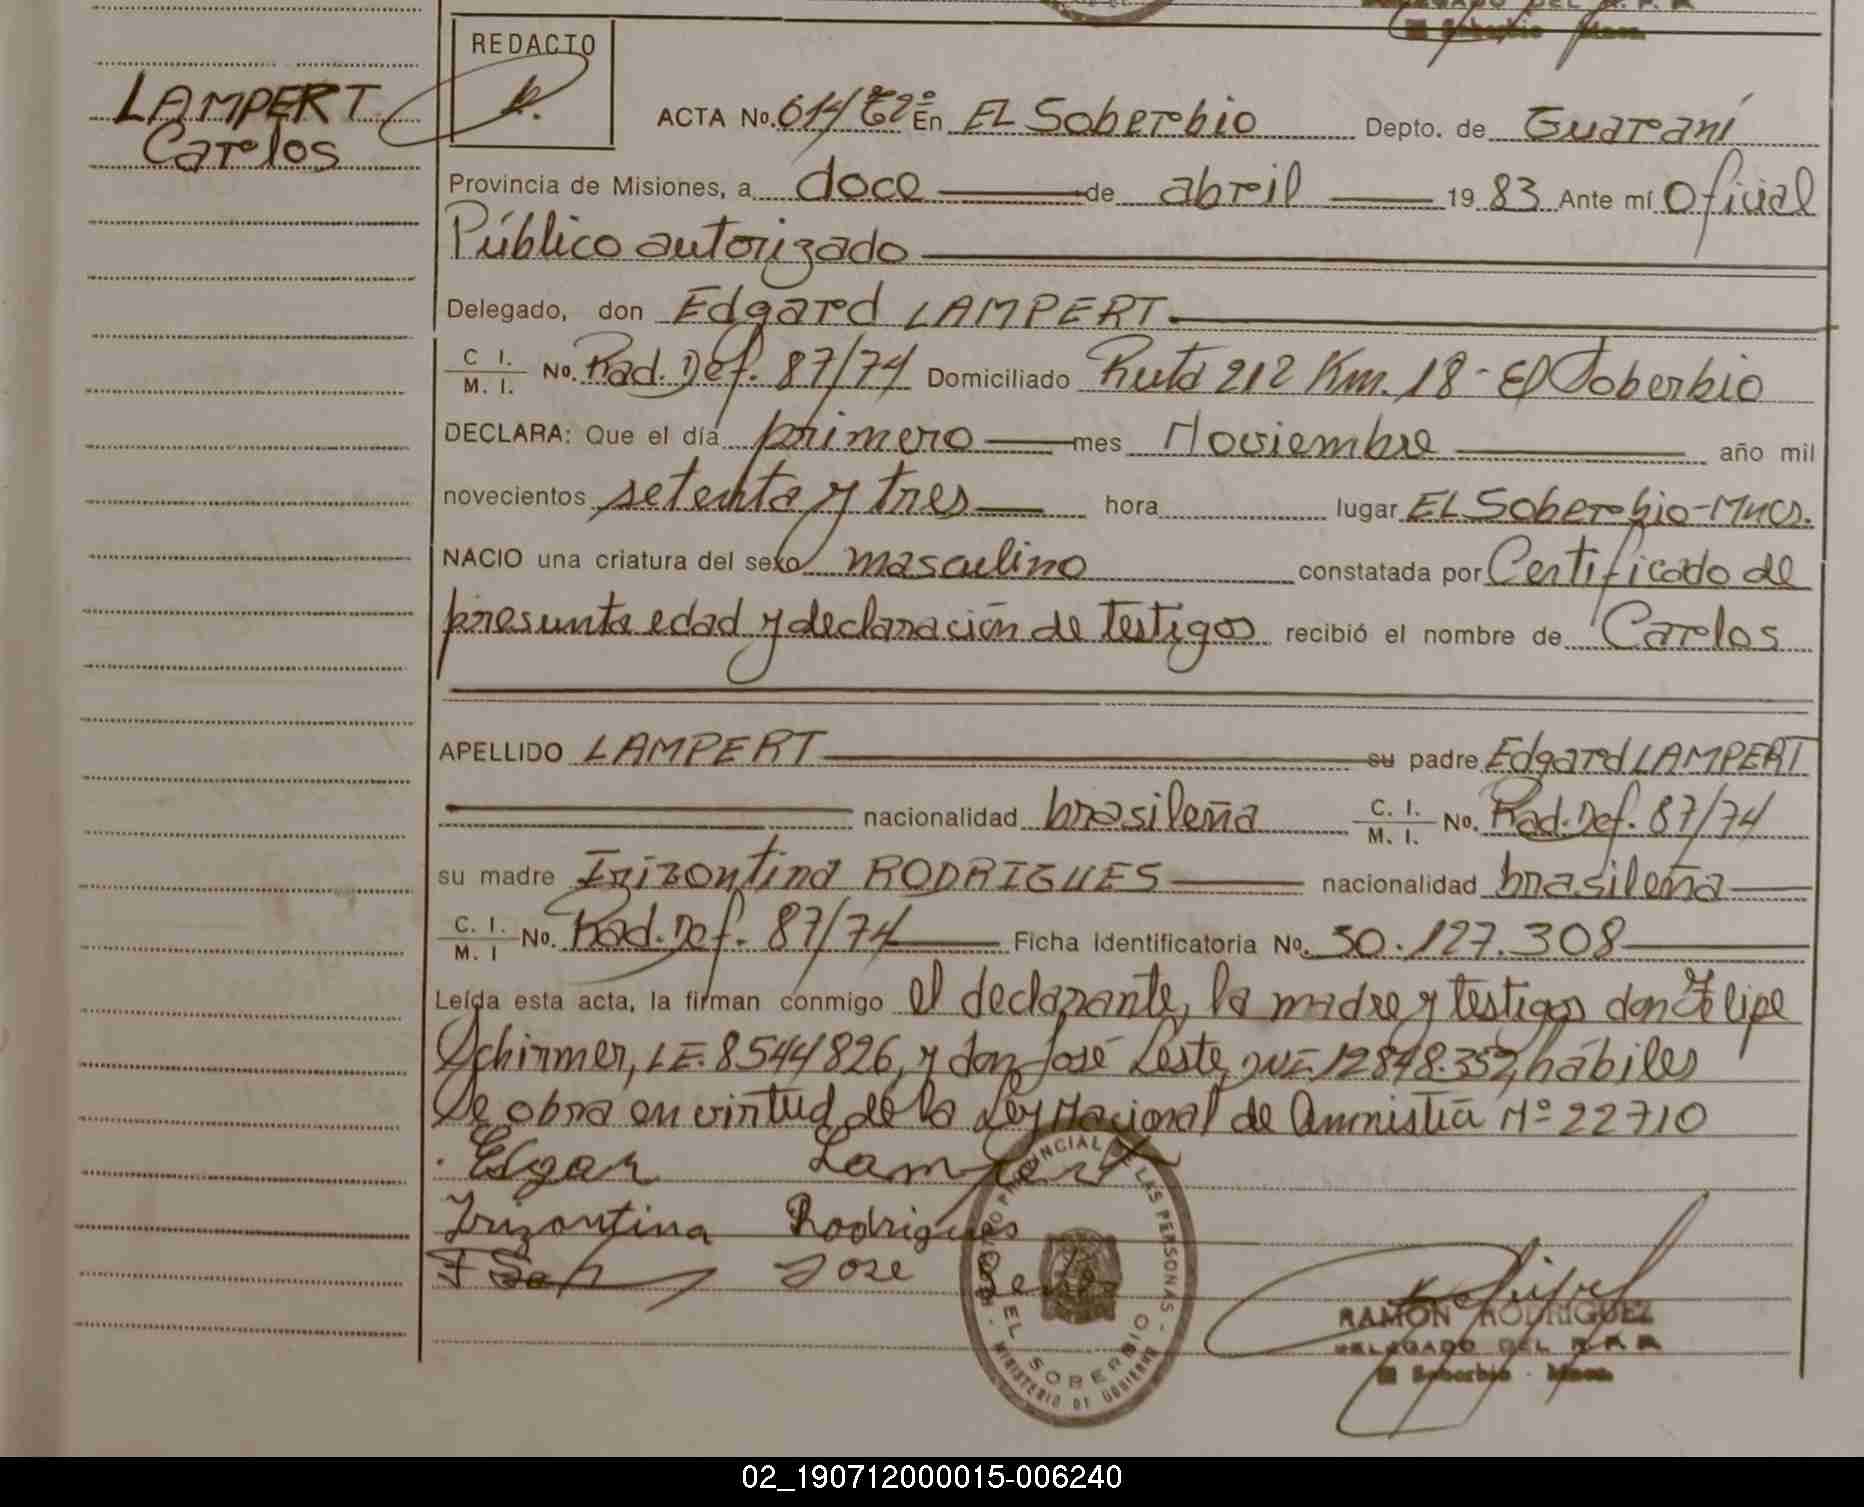 LAMPERT
Carlos
REDACTO
ACTA No. 614/ Tº2º En EL Soberbio Depto. de Guaraní
Provincia de Misiones, a doce de abril 1983 Ante mí Oficial
Público autorizado
Delegado, don Edgard LAMPERT
C. I.
M. I. No. Rad. Def. 87/74 Domiciliado Ruta 212 Km. 18 - El Soberbio
DECLARA: Que el día primero mes Noviembre año mil
novecientos setenta y tres hora lugar EL Soberbio-Mnes.
NACIO una criatura del sexo masculino constatada por Certificado de
presunta edad y declaración de testigos recibió el nombre de Carlos
APELLIDO LAMPERT su padre Edgard LAMPERT
nacionalidad brasileña C. I.
M. I. No. Rad. Def. 87/74
su madre Irizontina RODRIGUES nacionalidad brasileña
C. I.
M. I No. Rad. Def. 87/74 Ficha Identificatoria No. 30.127.308
Leída esta acta, la firman conmigo el declarante, la madre y testigos don Felipe
Schirmer, L.E. 8544826, y don José Leste, DNI. 12848.352, hábiles
Se obra en virtud de la Ley Nacional de Amnistía Nº 22710
Edgar Lampert
Irizontina Rodrigues
Jose
REGISTRO PROVINCIAL DE LAS PERSONAS
EL SOBERBIO
MINISTERIO DE GOBIERNO
RAMON RODRIGUEZ
DELEGADO DEL R.P.P.
El Soberbio - Mnes.
02_190712000015-006240